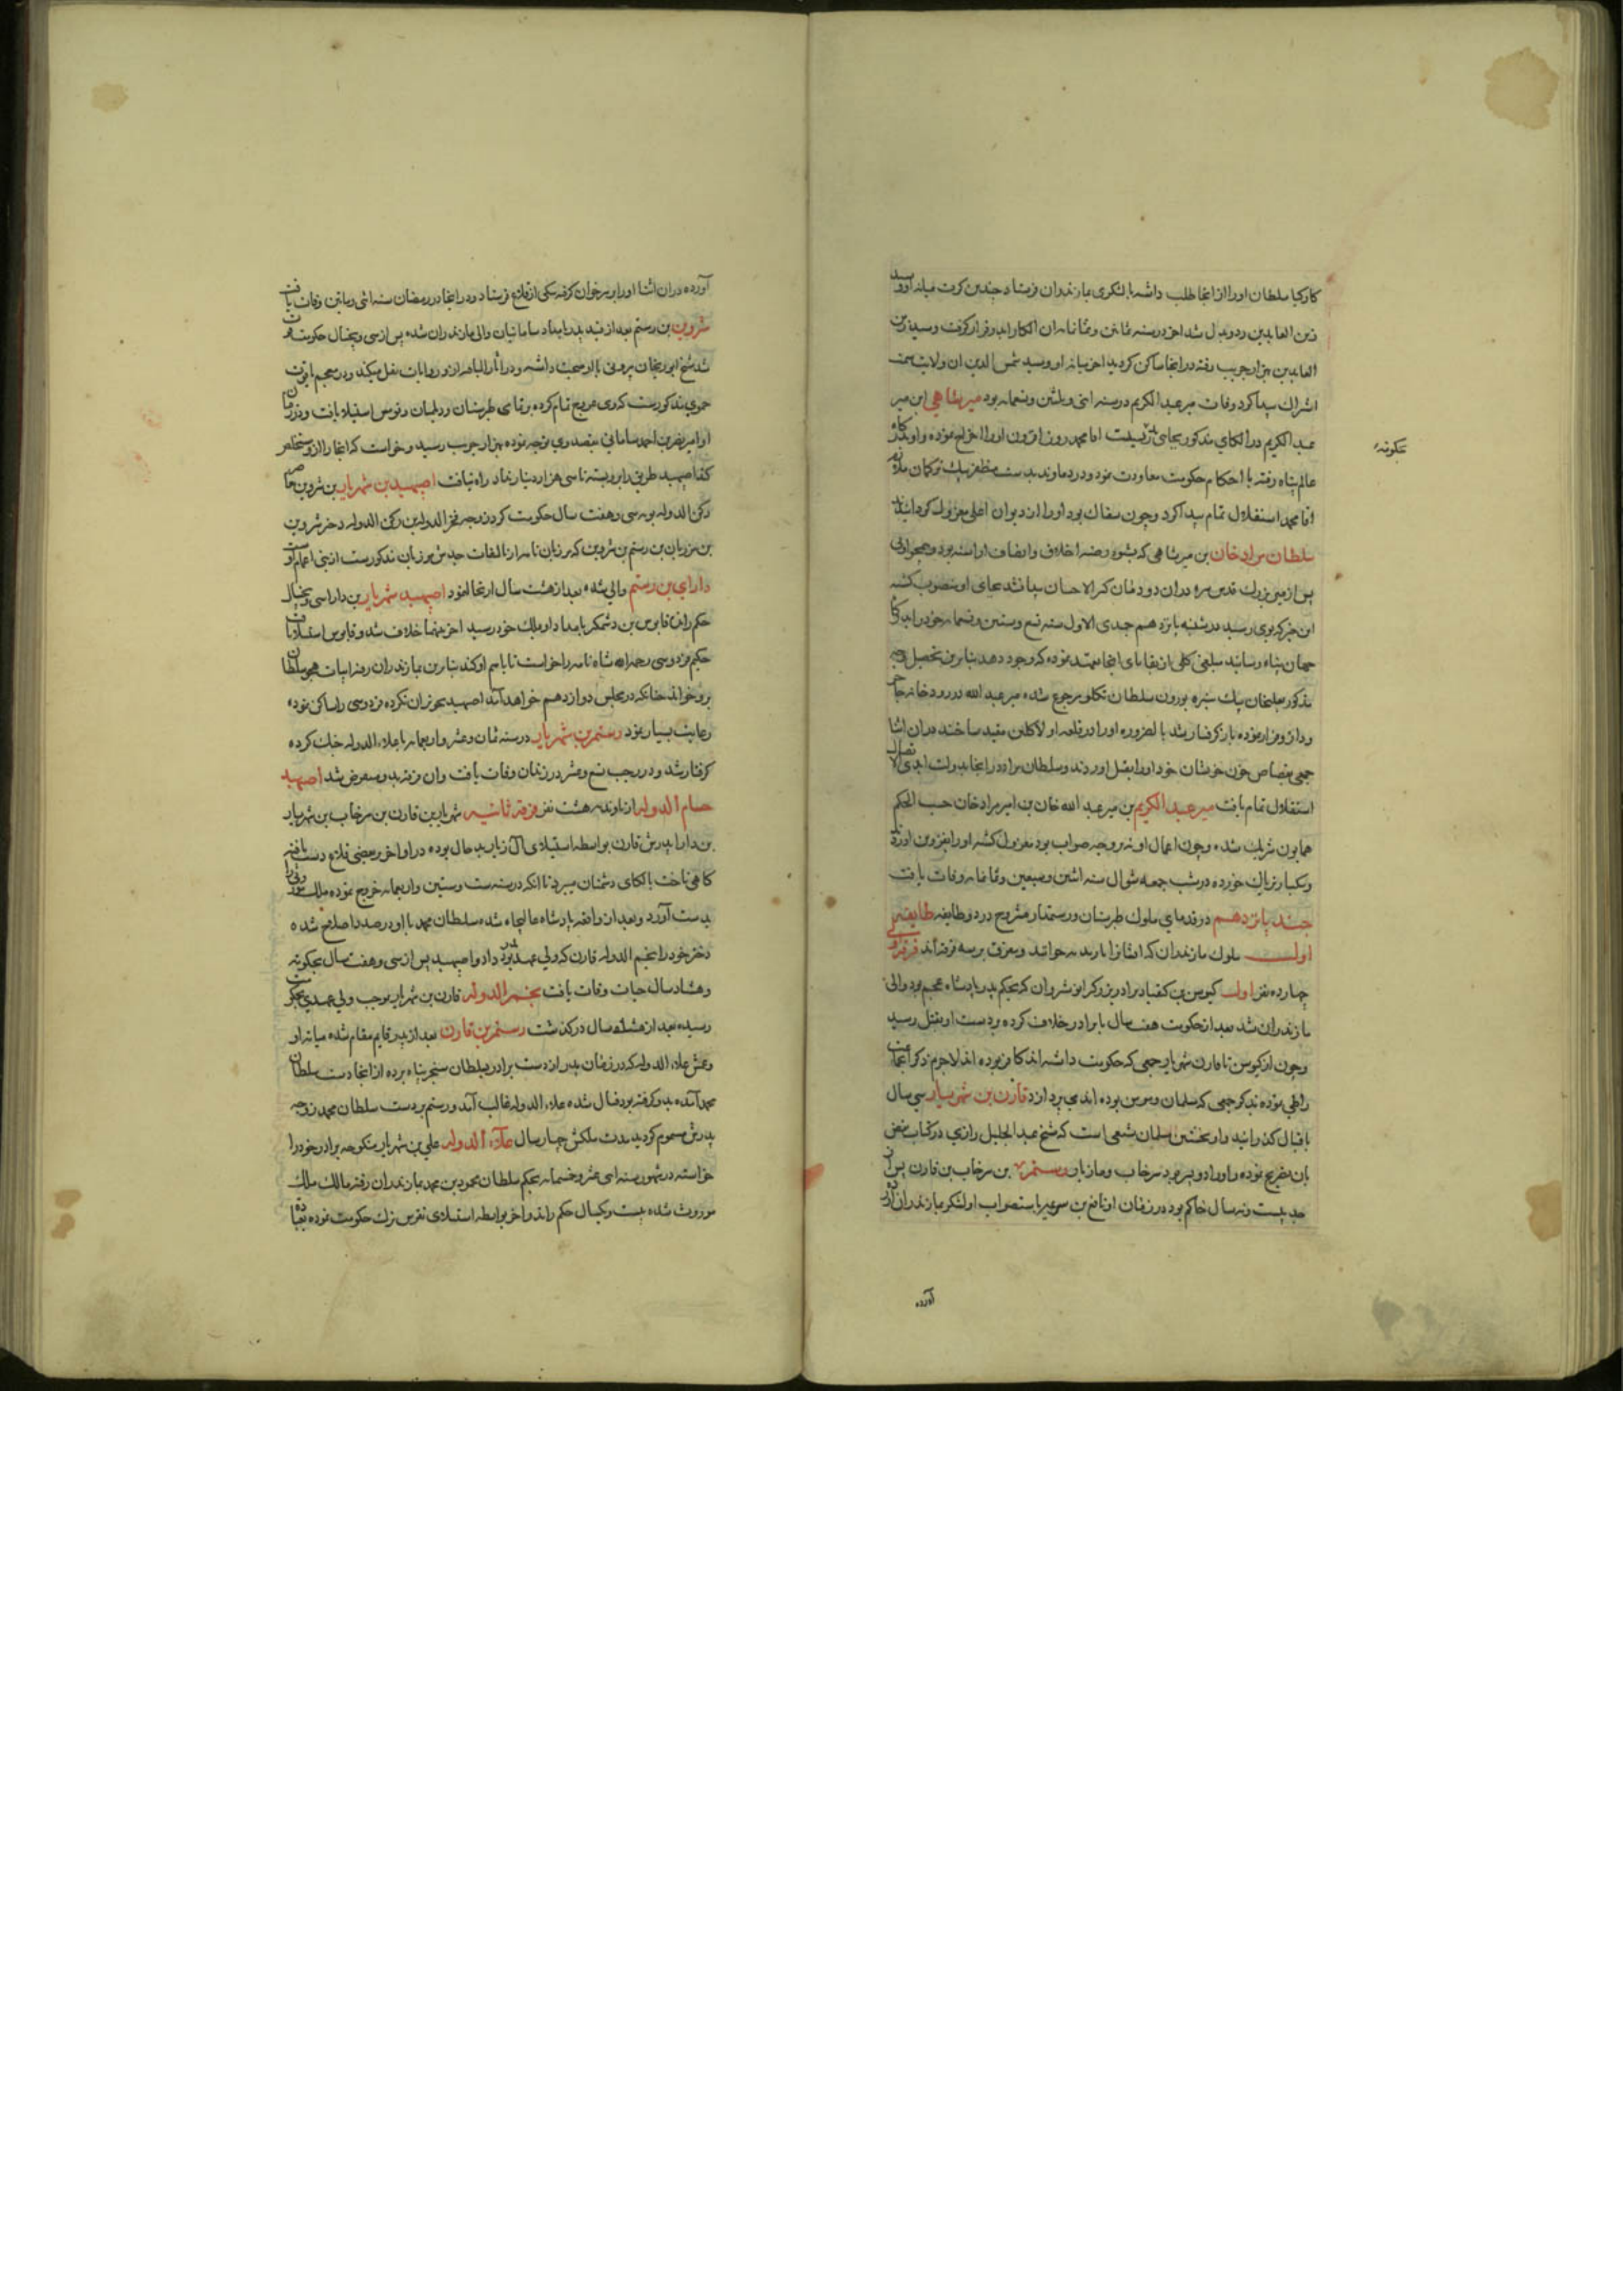 کارکیا سلطان اورا از انجا طلب داشته با لشکری بمازندران فرستاد چندین کرت میانه او و سید
زین العابدین ردوبدل شد اخر در سنه ثمانین و ثمانمایه ان الکا را بدو قرار گرفت و سید زین
العابدین بهزارجریب رفته در انجا ساکن کردید اخر میانه او و سید شمس الدین ان ولایت سمت
اشتراک پیدا کرد وفات میر عبد الکریم در سنه اثنی و ثلثین و تسعمایه بود میر شاهی ابن میر
عبد الکریم در الکای مذکور بجای پدر نشست اقا محمد روز افزون اورا اخراج نموده و او بدرکاه
عالم پناه رفته با احکام حکومت معاودت نمود و در دماوند بدست مظفر بیک ترکمان ملازم
اقا محمد استقلال تمام پیدا کرد و چون سفاک بود اورا از دیوان اعلی معزول کردانیدند
سلطان مراد خان بن میر شاهی که بشیوه رضیه اخلاق و انصاف اراسته بود و همجوار
پس از میر بزرک قدس سره دران دودمان کثیر الاحسان بجای او منصوب کشته
این خبر که بوی رسید در شنبه پانزدهم جمدی الاول سنه تسع و ستین و تسعمایه خود را بدرکاه
جهان پناه رسانید مبلغی کلی از بقایای انجا متعهد نموده که وجود دهد بنابرین تحصیل وجه
مذکور بعلیخان بیک نبیره بورون سلطان تکلو مرجوع شده میر عبد الله در رودخانه
و دار و فرار نموده باز گرفتار شد بالضروره اورا در قلعه اولاکلین مقید ساختند دران اثنا
جمعی بقصاص خون خویشان خود اورا بقتل اوردند و سلطان مراد در انجا بدولت ابدی الاتصال
استقلال تمام یافت میر عبد الکریم بن میر عبد الله خان بن امیر مراد خان حسب الحکم
همایون شریک شده و چون اعمال او نه بر وجه صواب بود معزول کشته اورا بقزوین اوردند
و یکبار تریاک خورده در شب جمعه شوال سنه اثنین و سبعین و تسعمایه وفات یافت
جند یازدهم در قدمای ملوک طبرستان و رستمدار مشروح در دو طایفه طایفه
اولی ملوک مازندران که ایشانرا باوندیه خوانند و متفرق بر سه فرقه اند فرقه اولی
چهارده نفر اول کیوس بن کیقباد برادر بزرکتر انوشروان که بحکم پدر پادشاه عجم بود والی
مازندران شد بعد از حکومت هفت سال با برادر خلاف کرده بر دست او بقتل رسید
و چون از کیوس تا قارن شهریار جمعی که حکومت داشته اند کافر بوده اند لاجرم ذکر انجماعت
را طی نموده بذکر جمعی که مسلمان و مومن بوده اند می پردازد قارن بن شهریار سی سال
باقبال کذرانید و او نخستین مسلمان شیعی است که شیخ عبد الجلیل رازی در کتاب نقض
بان تصریح نموده و اورا دو پسر بود سرخاب و مازیار رستم بن سرخاب بن قارن پس از
جد بیست و نه سال حاکم بود در زمان او رافع بن باستصواب او لشکر بمازندران
آورده
عجکونه
آورده دران اثنا اورا بر سر خوان گرفته بیکی از قلاع فرستاد و در انجا در رمضان سنه اثنی و مایتین وفات یافت
شروین بن رستم بعد از قید پدر بامداد سامانیان والی مازندران شده پس از سی و پنجسال حکومت
شد شیخ ابوریحان بیرونی با او صحبت داشته و در اثار الباقیه از و روایات نقل میکند و در معجم یاقوت
حموی مذکورست که وی خروج تمام کرده بر تمامی طبرستان و دیلمان و قومس استیلا یافت و در زمان
او امیر نصر بن احمد سامانی بقصد وی توجه نموده بهزارجریب رسید و خواست که انجا را از و مستخلص
کند اصپهبد طریق را بر و بسته تا سی هزار دینار نداد راه نیافت اصپهبد بن شهریار بن شروین معاصر
رکن الدوله بویه سی و هفت سال حکومت کرد زوجه فخر الدوله بن رکن الدوله دختر شروین
بن مرزبان بن رستم بن شروین که مرزبان نامه از تالیفات جدش مرزبان مذکورست از بنی اعمام اوست
دارای بن رستم والی شده بعد از هشت سال ارتحال نمود اصپهبد شهریار بن دارا سی و پنجسال
حکم راند قابوس بن وشمکیر بامداد او بملک خود رسید اخر بینهما خلاف شد و قابوس استیلا یافت
حکیم فردوسی رحمه الله شاه نامه را خواست تا باسم او کند بنابرین بمازندران رفته ابیات هجو سلطان
برو خواند چنانکه در مجلس دوازدهم خواهد آمد اصپهبد تجویز ان نکرده فردوسی را ساکن نموده
رعایت بسیار نمود رستم بن شهریار در سنه ثمان و عشر و اربعمایه با علاء الدوله جنک کرده
گرفتار شد و در رجب تسع و عشر در زندان وفات یافت و ان فرقه بدو منقرض شد اصپهبد
حسام الدوله از باوندیه هشت نفر فرقه ثانیه شهریار بن قارن بن سرخاب بن شهریار
بن دارا پدرش قارن بواسطه استیلای آل زیار بدحال بوده در اواخر بر بعضی قلاع دست یافته
کاهی تاخت بالکای دشمنان میبرد تا انکه در سنه ست و ستین و اربعمایه خروج نموده ملک موروثی را
بدست آورد و بعد از واقعه پادشاه عالیجاه شده سلطان محمد با او در صدد اصلاح شده
دختر خود را بنجم الدوله قارن که ولی عهد پدر بود داد و اصپهبد پس از سی و هفت سال حکومت
و هشتاد سال حیات وفات یافت نجم الدوله قارن بن شهریار بموجب ولی عهدی بحکومت
رسیده بعد از هشت سال درکذشت رستم بن قارن بعد از پدر قایم مقام شده میانه او
و عمش علاء الدوله که در زمان پدر از دست برادر بسلطان سنجر پناه برده از انجا دست سلطان
محمد آمده بدو کرفته بود قتال شده علاء الدوله غالب آمد و رستم بر دست سلطان محمد زوجه
پدرش مسموم کردید مدت ملکش چهار سال علاء الدوله علی بن شهریار منکوحه برادر خود را
خواسته در شهور سنه احدی عشر و خمسمایه بحکم سلطان محمود بن محمد بمازندران رفته مالک ملک
موروث شده بیست و یکسال حکم راند و اخر بواسطه استیلای نقرس ترک حکومت نموده